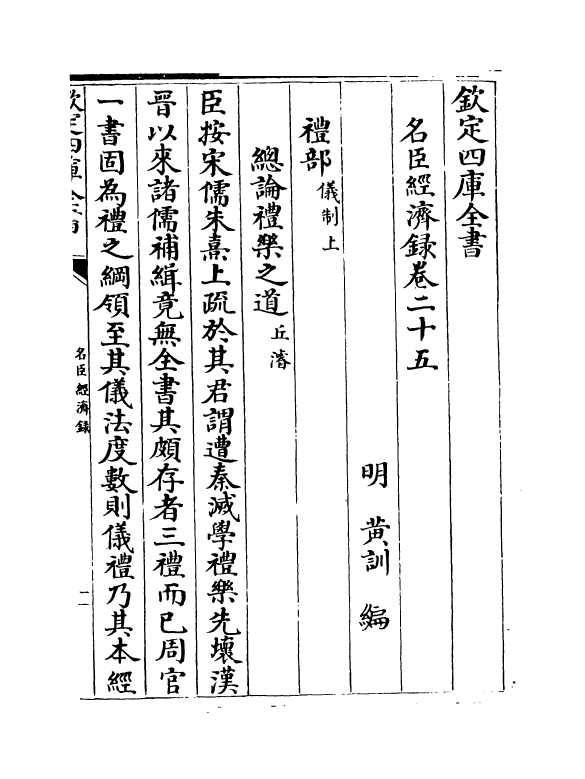 欽定四庫全書
名臣經濟録卷二十五
明 黄訓 編
禮部儀制上
總論禮樂之道丘濬
臣按宋儒朱熹上疏於其君謂遭秦滅學禮樂先壞漢
晉以來諸儒補緝竟無全書其頗存者三禮而已周官
一書固為禮之綱領至其儀法度數則儀禮乃其本經
名臣經濟録